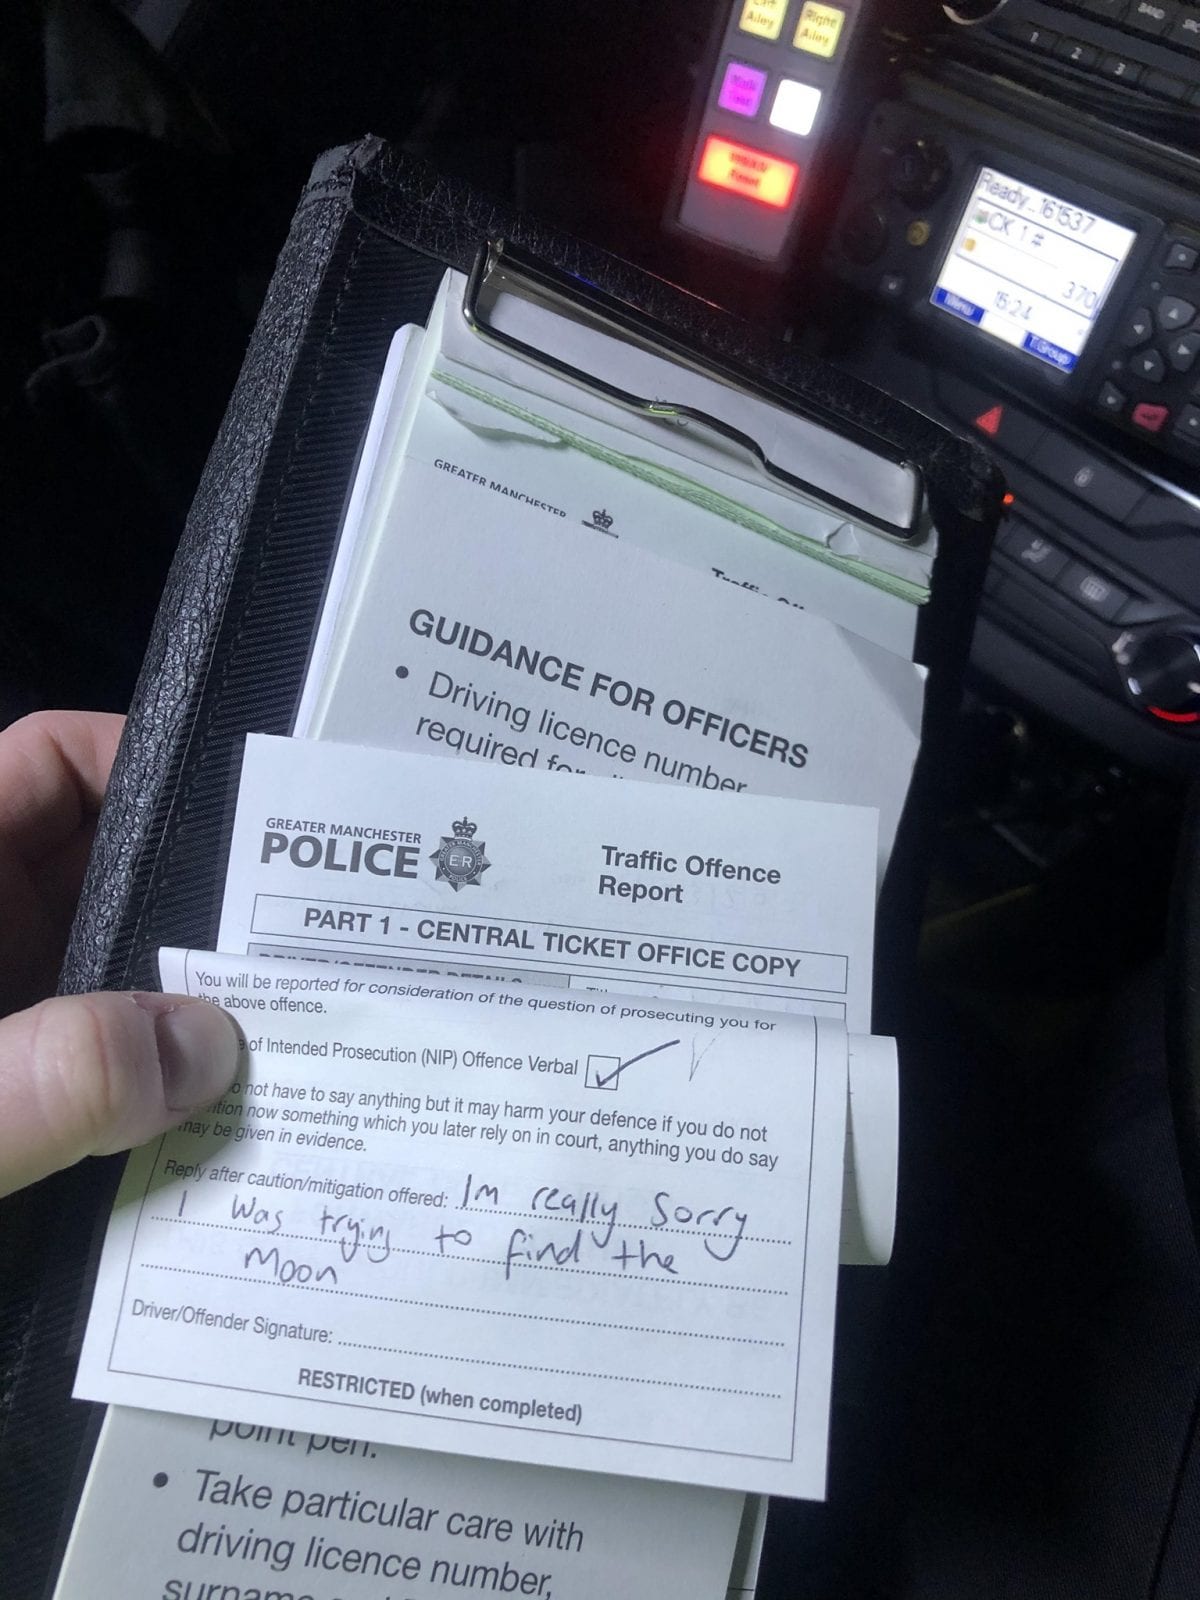 Alley
Right
Alley
Reset
BAND
1
2
3
Ready..161537
CK 1 #
370
15:24
Menu
T.Group
GREATER MANCHESTER
GUIDANCE FOR OFFICERS
• Driving licence number
required for
GREATER MANCHESTER
POLICE
ER
Traffic Offence
Report
PART 1 - CENTRAL TICKET OFFICE COPY
DRIVER/OFFENDER DETAILS
You will be reported for consideration of the question of prosecuting you for
the above offence.
of Intended Prosecution (NIP) Offence Verbal ✓
not have to say anything but it may harm your defence if you do not
now something which you later rely on in court, anything you do say
may be given in evidence.
Reply after caution/mitigation offered: Im really Sorry
I was trying to find the
Moon
Driver/Offender Signature:
RESTRICTED (when completed)
point pen.
• Take particular care with
driving licence number,
surname